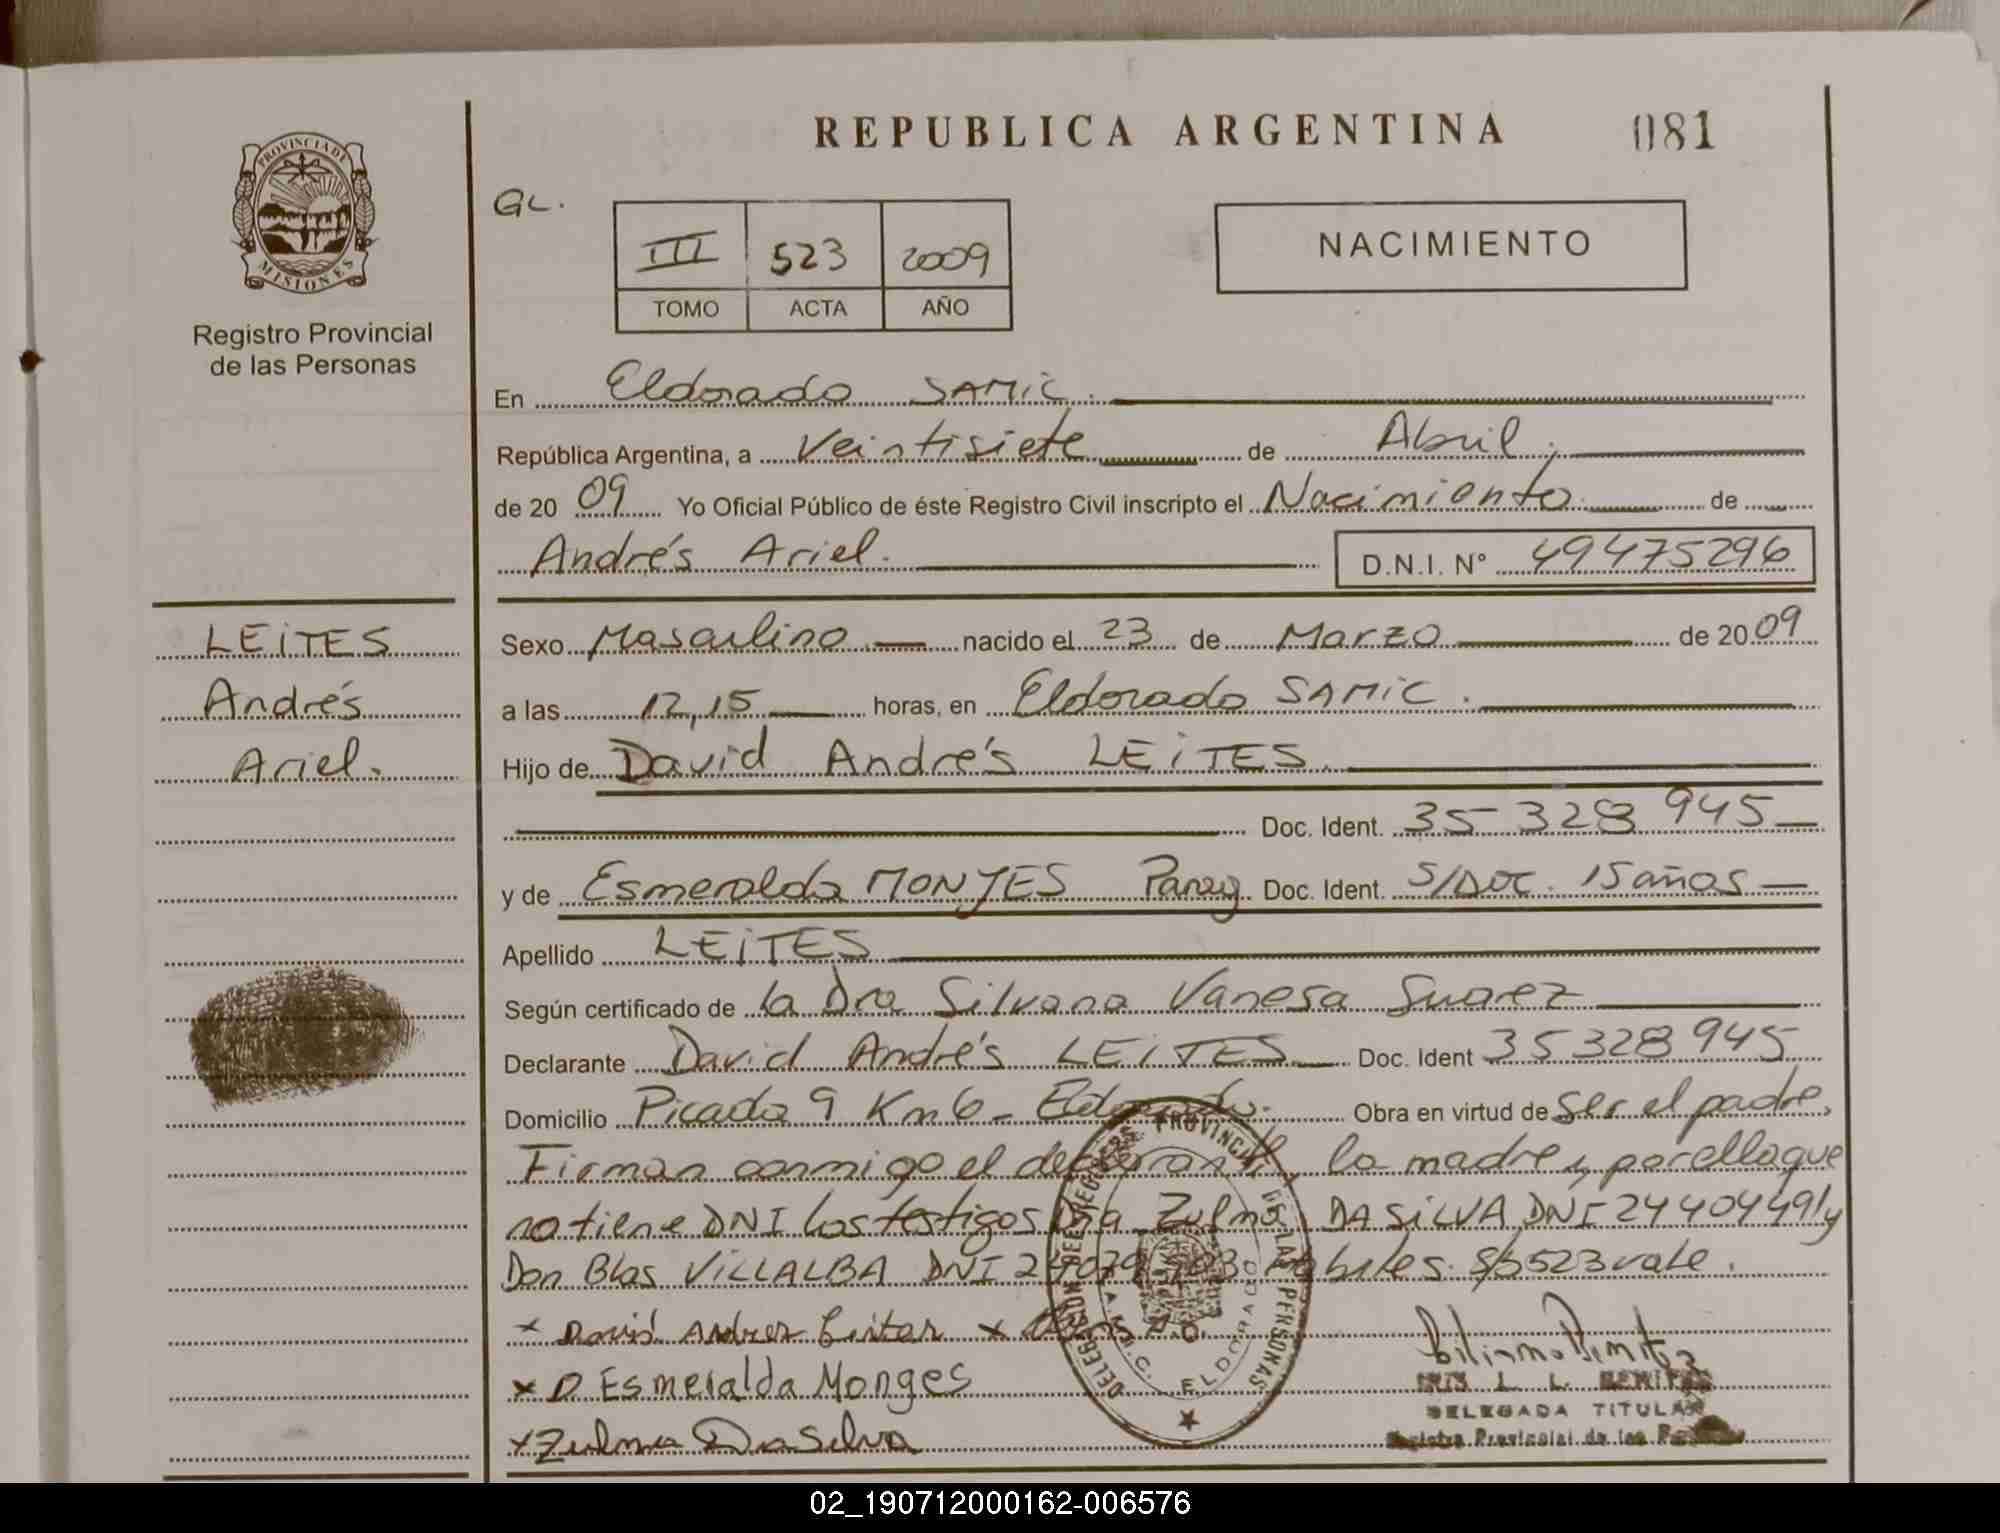 REPUBLICA ARGENTINA
081
PROVINCIA DE
MISIONES
Registro Provincial
de las Personas
GL.
III 523 2009
TOMO ACTA AÑO
NACIMIENTO
En Eldorado SAMIC.
República Argentina, a Veintisiete de Abril,
de 20 09 Yo Oficial Público de éste Registro Civil inscripto el Nacimiento de
Andrés Ariel. D.N.I. N° 49475296
LEITES
Andrés
Ariel.
Sexo Masculino nacido el 23 de Marzo de 20 09
a las 12,15 horas, en Eldorado SAMIC.
Hijo de David Andrés LEITES
Doc. Ident. 35 328 945
y de Esmeralda MONJES Doc. Ident. S/DOC. 15 años
Apellido LEITES
Según certificado de la Dra Silvana Vanesa Suarez
Declarante David Andrés LEITES Doc. Ident 35 328 945
Domicilio Picada 9 Km 6 - Eldorado. Obra en virtud de ser el padre,
Firman conmigo el declarante, la madre y por ella que
no tiene DNI los testigos Dña Zulma DA SILVA DNI 24404491 y
Don Blas VILLALBA DNI hábiles. S/b 523 vale.
x David Andrez x
x D Esmeralda Monges
x Zulma Da Silva
DELEGACION DEL REGISTRO PROVINCIAL DE LAS PERSONAS
ELDORADO
L. L. BENITEZ
DELEGADA TITULAR
Registro Provincial de las
02_190712000162-006576